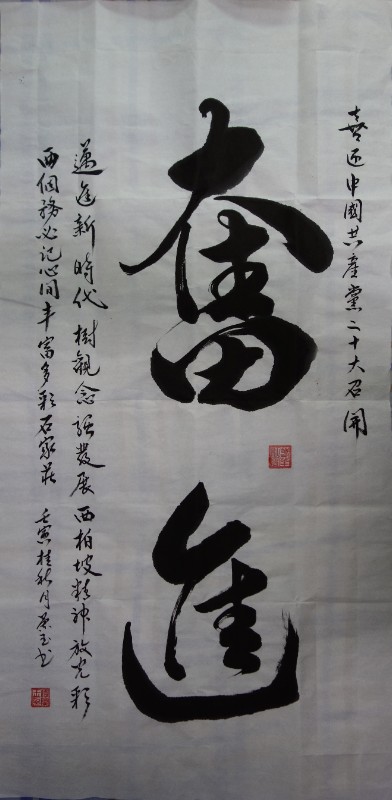 喜迎中國共產黨二十大召開
奮進
邁進新時代樹觀念強發展西柏坡精神放光彩
兩個務必記心間丰富多彩石家莊
壬寅桂秋月